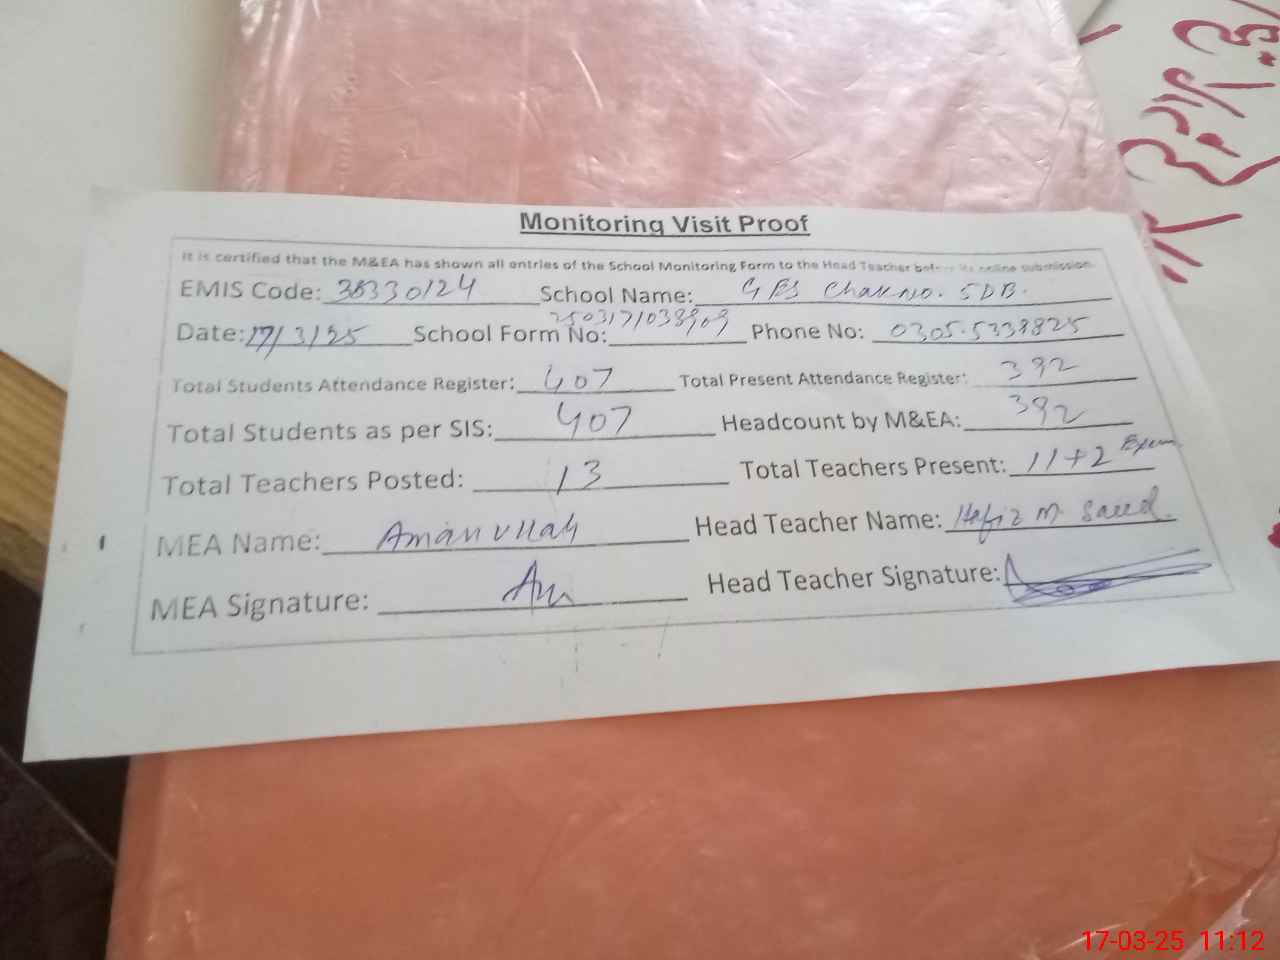 Monitoring Visit Proof
It is certified that the M&EA has shown all entries of the School Monitoring Form to the Head Teacher before its online submission.
EMIS Code: 38330124 School Name: GES Chak No. 5DB.
Date: 17/3/25 School Form No: 250317/038909 Phone No: 0305-5338825
Total Students Attendance Register: 407 Total Present Attendance Register: 392
Total Students as per SIS: 407 Headcount by M&EA: 392
Total Teachers Posted: 13 Total Teachers Present: 11+2
MEA Name: Amanullah Head Teacher Name: Hafiz M Saeed.
MEA Signature: Head Teacher Signature:
17-03-25 11:12